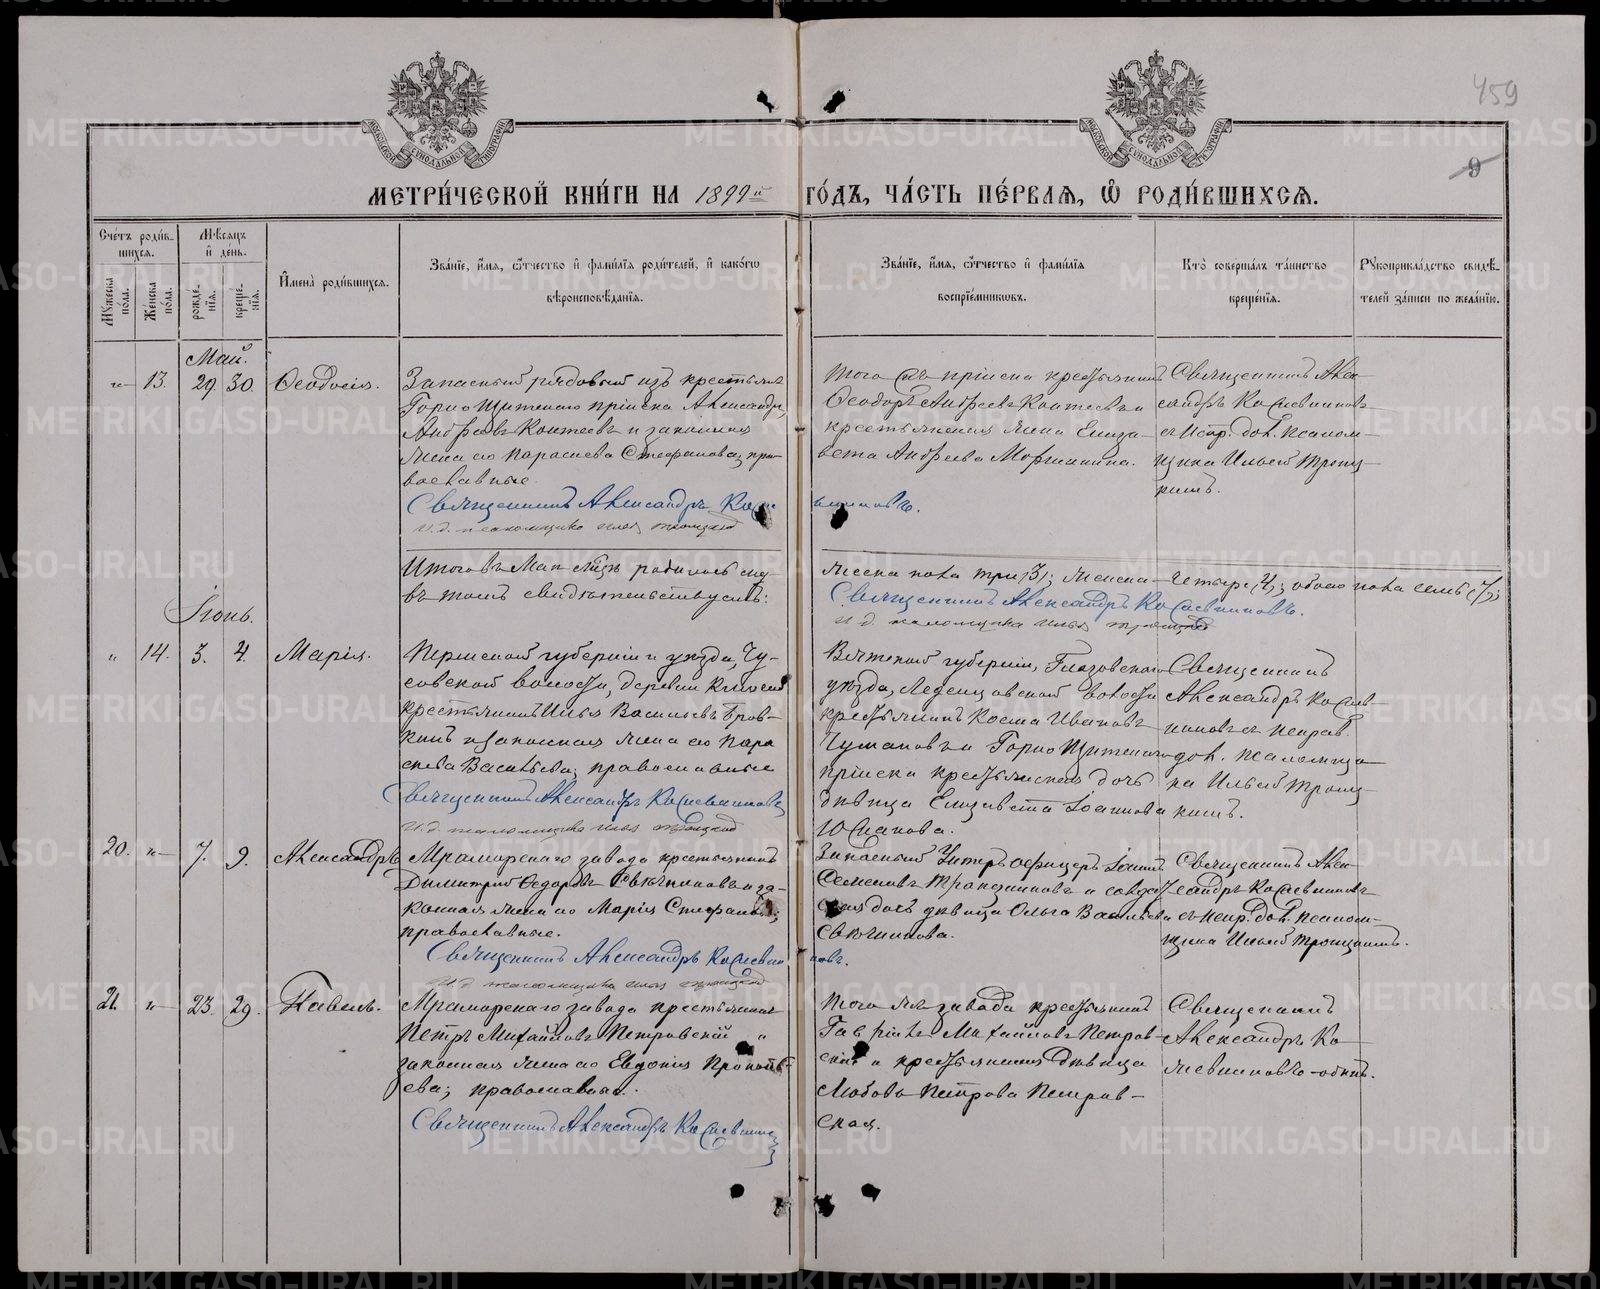 459
9
МЕТРИ́ЧЕСКОЙ КНИ́ГИ НА 1899й ГО́ДЪ, ЧА́СТЬ ПЕ́РВАѦ, Ѡ РОДИ́ВШИХСѦ.
Сче́тъ роди́вшихсѧ.
Мꙋжеска по́ла.
Женска по́ла.
Мѣсѧцъ и де́нь.
рожде́нїѧ.
креще́нїѧ.
Имена̀ роди́вшихсѧ.
Зва́нїе, и́мѧ, ѻ́тчество и фами́лїѧ роди́телей, и како́гѡ
вѣроисповѣ́данїѧ.
Зва́нїе, и́мѧ, ѻ́тчество и фами́лїѧ
воспрїе́мникѡвъ.
Кто̀ соверша́лъ та́инство
креще́нїѧ.
Рꙋкоприкла́дство свидѣ́телей за́писи по жела́нїю.
Май.
"
13.
29
30
Ѳеодосія.
Запасный рядовый изъ крестьянъ
Горно Щитскаго пріиска Александръ
Андреевъ Коптевъ и законная
жена его Параскева Стефанова, пра-
вославные.
Священникъ Александръ Кожевниковъ.
И. д. псаломщика Илья Троицкій
того жъ пріиска крестьянинъ
Ѳеодоръ Андреевъ Коптевъ и
крестьянская жена Елиза-
вета Андреева Моршинина.
Священникъ Алек-
сандръ Кожевниковъ
съ испр. дол. псалом-
щика Ильей Троиц-
кимъ.
Итого въ Маѣ мѣс. родилось му-
жеска пола три (3); женска — четыре (4); обоего пола семь (7);
въ томъ свидѣтельствуемъ:
Священникъ Александръ Кожевниковъ.
И. д. псаломщика Илья Троицкій
Іюнь.
"
14.
3.
4.
Марія.
Пермской губерніи и уѣзда, Чу-
совской волости, деревни
крестьянинъ Илья Васильевъ Бров-
кинъ и законная жена его Пара
скева Васильева; православные
Священникъ Александръ Кожевниковъ
И. д. псаломщика Илья Троицкій
Вятской губерніи, Глазовскаго
уѣзда, Леденцовской волости
крестьянинъ Косма Ивановъ
Чумановъ и Горно Щитскаго
пріиска крестьянская дочь
дѣвица Елизавета Іоаннова
Юшанова.
Священникъ
Александръ Кожев-
никовъ съ исправ.
дол. псаломщи-
ка Ильей Троиц-
кимъ.
20.
"
7.
9.
Александръ
Мраморскаго завода крестьянинъ
Димитрій Ѳедоровъ Свѣчниковъ и за-
конная жена его Марія Стефанова;
православные.
Священникъ Александръ Кожевниковъ.
И. д. псаломщика Илья Троицкій
Запасный Унтеръ офицеръ Іоаннъ
Семеновъ Трапезниковъ и солдат-
ская дочь дѣвица Ольга Васильева
Свѣчникова.
Священникъ Алек-
сандръ Кожевниковъ
съ испр. дол. псалом-
щика Ильей Троицкимъ.
21.
"
23.
29.
Павелъ.
Мраморскаго завода крестьянинъ
Петръ Михайловъ Петровскій и
законная жена его Евдокія Прокопь-
ева; православные.
Священникъ Александръ Кожевниковъ
того же завода крестьянинъ
Гавріилъ Михайловъ Петров-
скій и крестьянская дѣвица
Любовь Петрова Петров-
ская.
Священникъ
Александръ Ко-
жевниковъ — одинъ.
METRIKI.GASO-URAL.RU